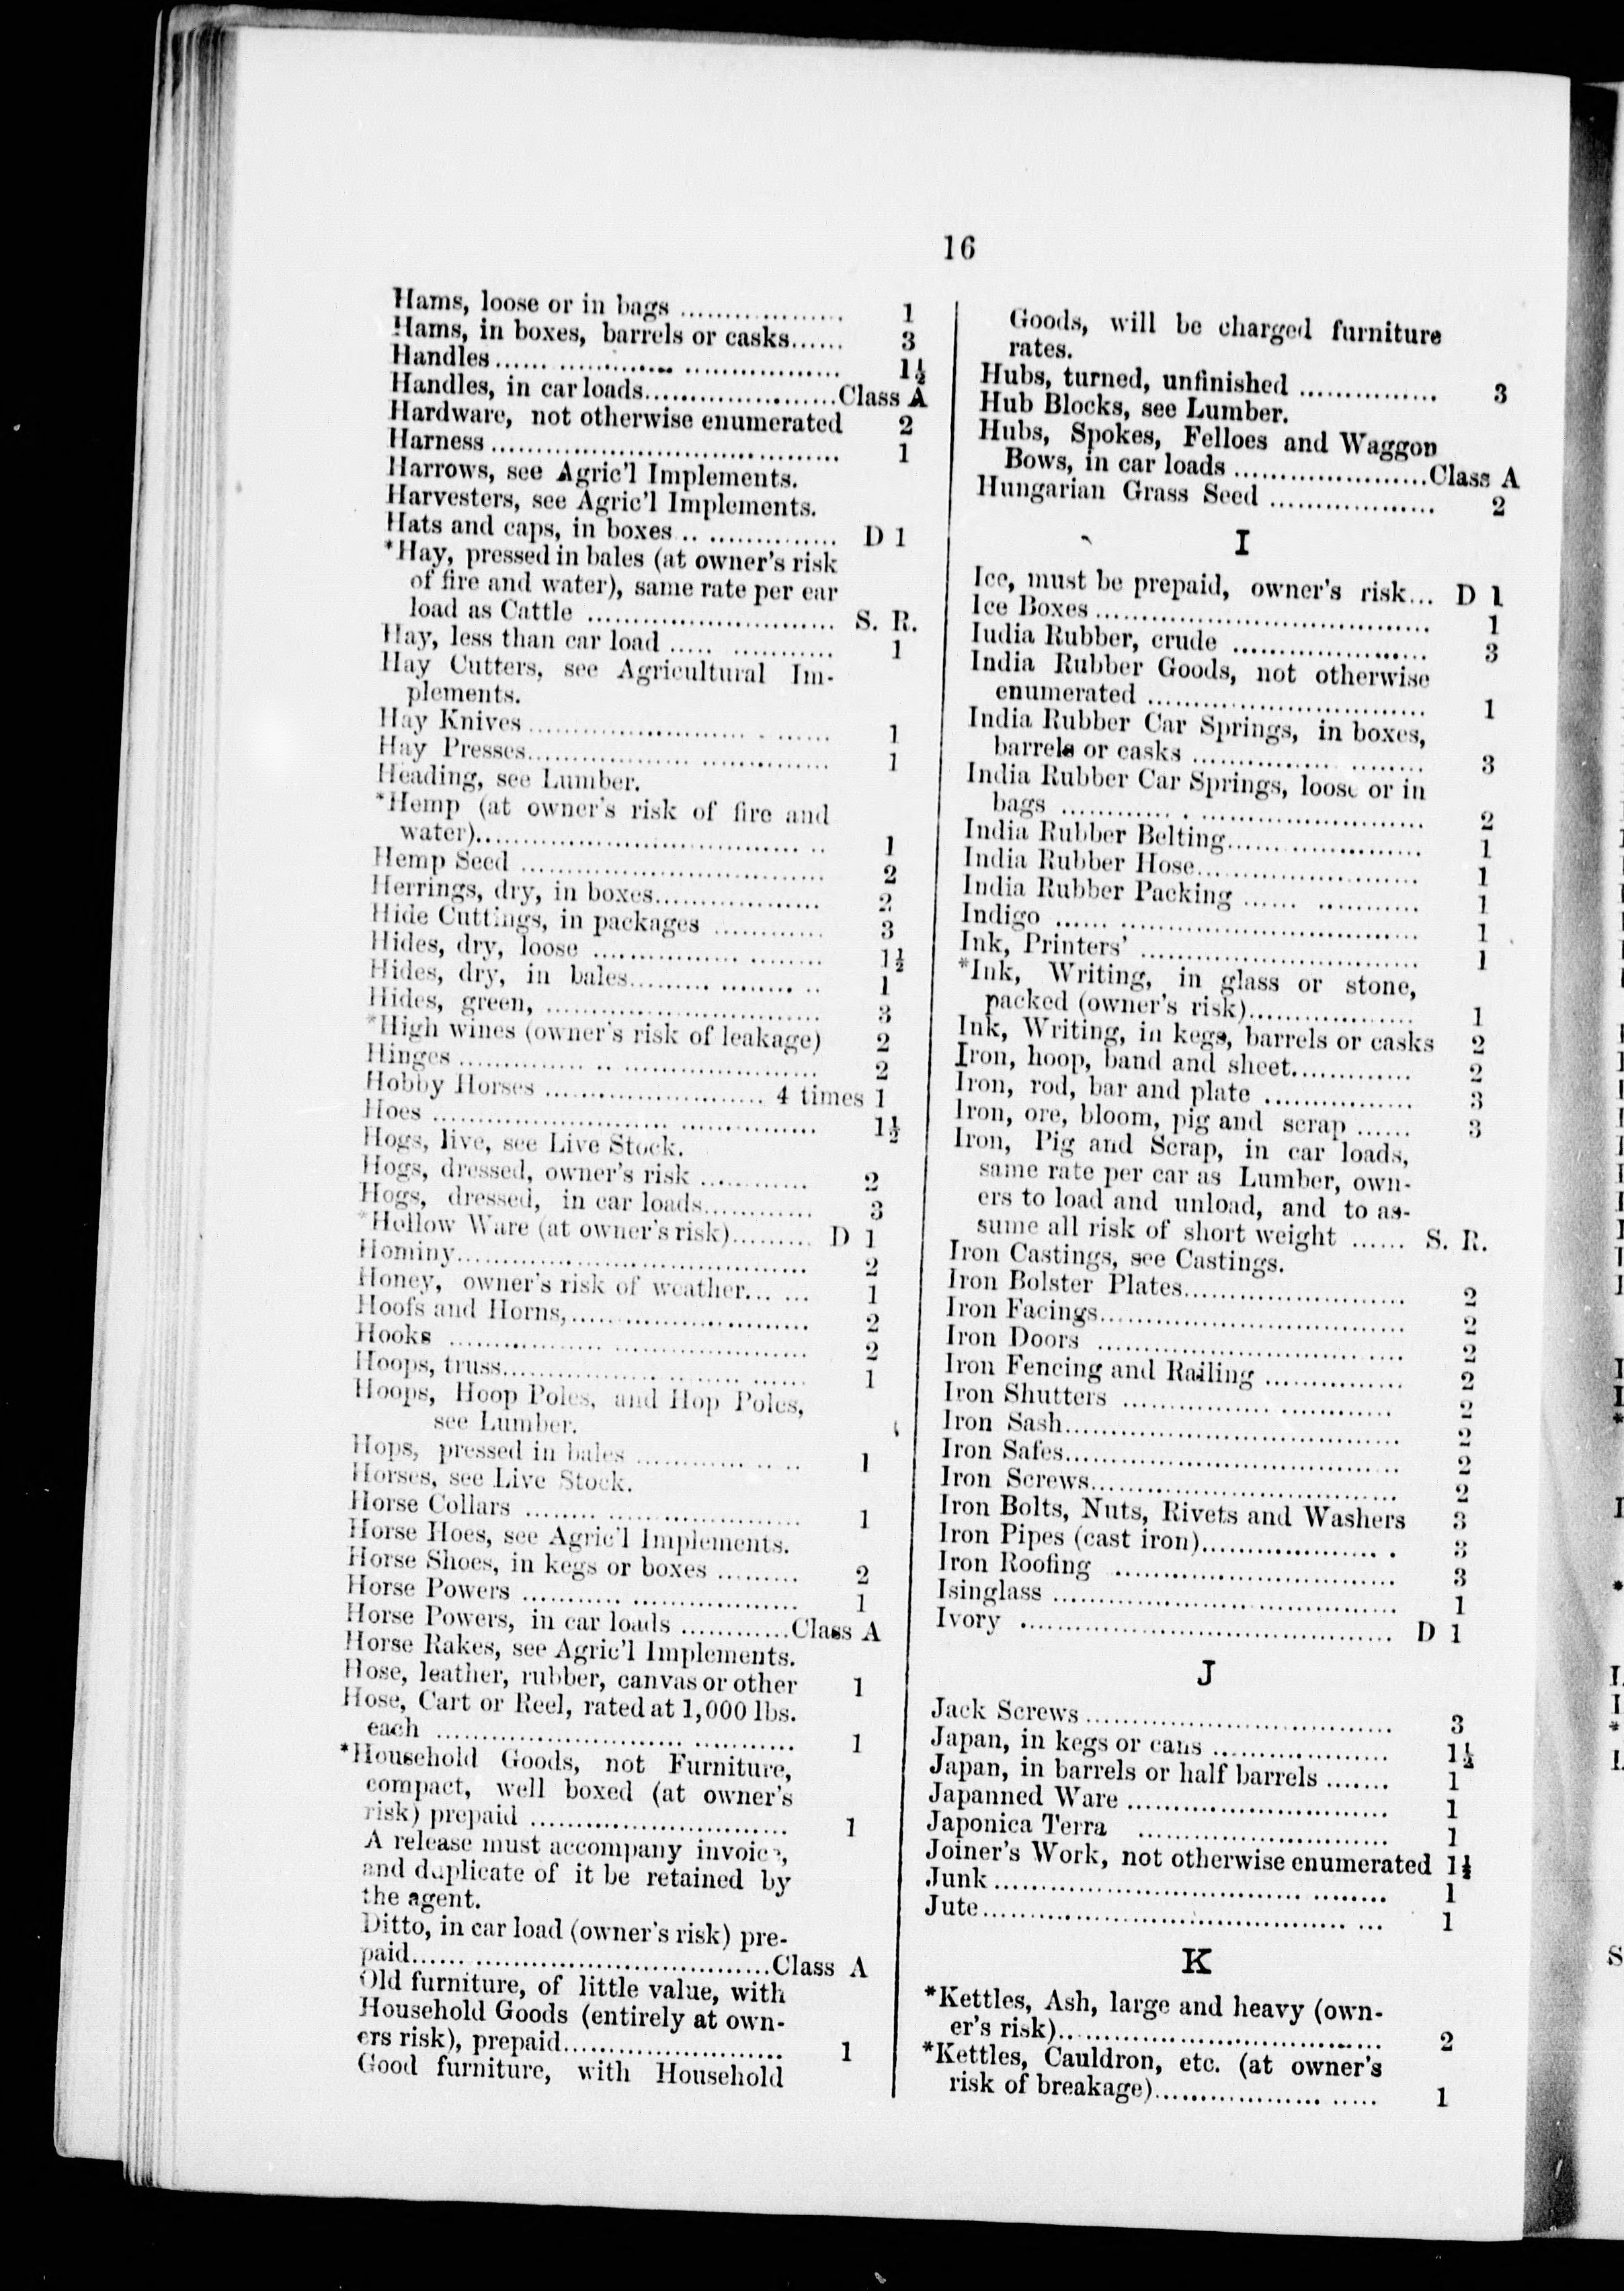 16
Hams, loose or in bags .................. 1
Hams, in boxes, barrels or casks...... 3
Handles...................................... 1½
Handles, in car loads......................Class A
Hardware, not otherwise enumerated 2
Harness ...................................... 1
Harrows, see Agric'l Implements.
Harvesters, see Agric'l Implements.
Hats and caps, in boxes ................. D 1
*Hay, pressed in bales (at owner's risk
of fire and water), same rate per car
load as Cattle ............................ S. R.
Hay, less than car load .................. 1
Hay Cutters, see Agricultural Im-
plements.
Hay Knives ................................. 1
Hay Presses................................. 1
Heading, see Lumber.
*Hemp (at owner's risk of fire and
water)...................................... 1
Hemp Seed .................................. 2
Herrings, dry, in boxes................... 2
Hide Cuttings, in packages ............ 3
Hides, dry, loose .......................... 1½
Hides, dry, in bales...................... 1
Hides, green, ............................... 3
*High wines (owner's risk of leakage) 2
Hinges ........................................ 2
Hobby Horses ......................... 4 times 1
Hoes ........................................... 1½
Hogs, live, see Live Stock.
Hogs, dressed, owner's risk ............ 2
Hogs, dressed, in car loads............ 3
*Hollow Ware (at owner's risk)......... D 1
Hominy....................................... 2
Honey, owner's risk of weather...... 1
Hoofs and Horns,.......................... 2
Hooks ........................................ 2
Hoops, truss................................. 1
Hoops, Hoop Poles, and Hop Poles,
see Lumber.
Hops, pressed in bales .................. 1
Horses, see Live Stock.
Horse Collars .............................. 1
Horse Hoes, see Agric'l Implements.
Horse Shoes, in kegs or boxes ......... 2
Horse Powers .............................. 1
Horse Powers, in car loads ............Class A
Horse Rakes, see Agric'l Implements.
Hose, leather, rubber, canvas or other 1
Hose, Cart or Reel, rated at 1,000 lbs.
each ........................................ 1
*Household Goods, not Furniture,
compact, well boxed (at owner's
risk) prepaid ............................ 1
A release must accompany invoice,
and duplicate of it be retained by
the agent.
Ditto, in car load (owner's risk) pre-
paid.......................................Class A
Old furniture, of little value, with
Household Goods (entirely at own-
ers risk), prepaid........................ 1
Good furniture, with Household
Goods, will be charged furniture
rates.
Hubs, turned, unfinished ............... 3
Hub Blocks, see Lumber.
Hubs, Spokes, Felloes and Waggon
Bows, in car loads ......................Class A
Hungarian Grass Seed .................. 2
I
Ice, must be prepaid, owner's risk... D 1
Ice Boxes ..................................... 1
India Rubber, crude ..................... 3
India Rubber Goods, not otherwise
enumerated ............................... 1
India Rubber Car Springs, in boxes,
barrels or casks ........................ 3
India Rubber Car Springs, loose or in
bags ........................................ 2
India Rubber Belting..................... 1
India Rubber Hose........................ 1
India Rubber Packing .................. 1
Indigo ........................................ 1
Ink, Printers' ............................... 1
*Ink, Writing, in glass or stone,
packed (owner's risk).................. 1
Ink, Writing, in kegs, barrels or casks 2
Iron, hoop, band and sheet............. 2
Iron, rod, bar and plate ................ 3
Iron, ore, bloom, pig and scrap ...... 3
Iron, Pig and Scrap, in car loads,
same rate per car as Lumber, own-
ers to load and unload, and to as-
sume all risk of short weight ...... S. R.
Iron Castings, see Castings.
Iron Bolster Plates........................ 2
Iron Facings................................. 2
Iron Doors .................................. 2
Iron Fencing and Railing ............... 2
Iron Shutters .............................. 2
Iron Sash..................................... 2
Iron Safes.................................... 2
Iron Screws.................................. 2
Iron Bolts, Nuts, Rivets and Washers 3
Iron Pipes (cast iron)..................... 3
Iron Roofing ............................... 3
Isinglass ..................................... 1
Ivory .......................................... D 1
J
Jack Screws ................................. 3
Japan, in kegs or cans ................... 1½
Japan, in barrels or half barrels ....... 1
Japanned Ware ............................ 1
Japonica Terra ............................ 1
Joiner's Work, not otherwise enumerated 1½
Junk ........................................... 1
Jute............................................ 1
K
*Kettles, Ash, large and heavy (own-
er's risk)................................... 2
*Kettles, Cauldron, etc. (at owner's
risk of breakage)........................ 1